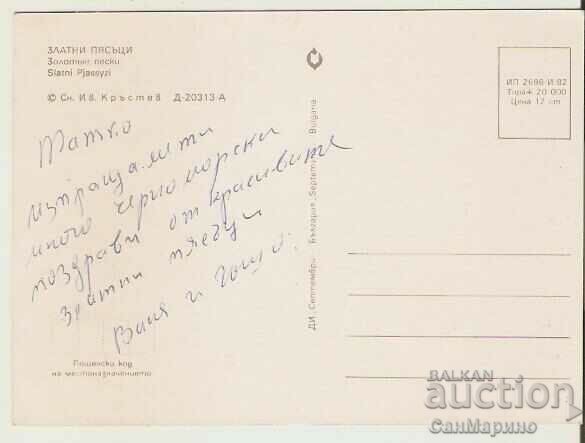 ЗЛАТНИ ПЯСЪЦИ
Золотые пески
Slatni Pjassyzi
© Сн. Ив. Кръстев Д-20313-А
Татко
изпращаме ти
много черноморски
поздрави от красивите
златни пясъци
Ваня и Гошо.
Пощенски код
на местоназначението
ДИ „Септември" България, Septemvri Bulgaria
ИП 2696·И·82
Тираж 20 000
Цена 12 ст
BALKAN
auction
СанМарино